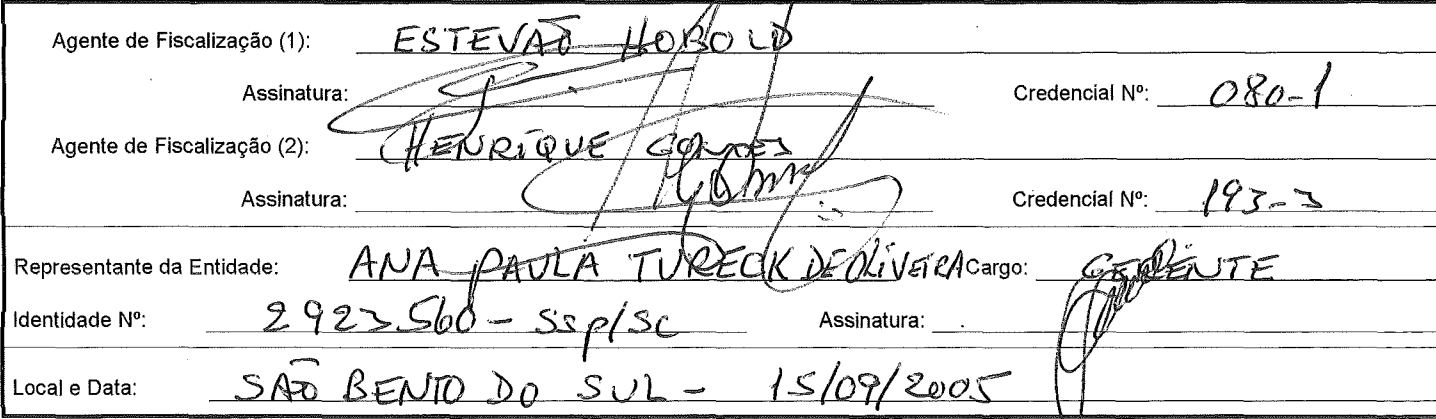 Agente de Fiscalização (1): ESTEVAÕ HOBOLD
Assinatura: Credencial Nº: 080-1
Agente de Fiscalização (2): HENRIQUE GOMES
Assinatura: Credencial Nº: 193-3
Representante da Entidade: ANA PAULA TURECK DE OLIVEIRA Cargo: GERENTE
Identidade Nº: 2923560 - SSP/SC Assinatura:
Local e Data: SAÕ BENTO DO SUL - 15/09/2005